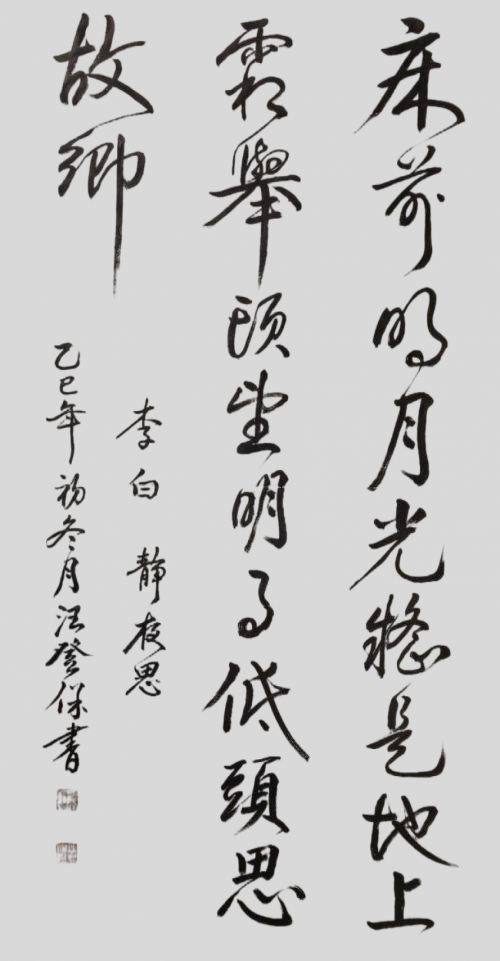 床前明月光疑是地上
霜舉頭望明月低頭思
故鄉
李白 靜夜思
乙巳年初冬月汪登保書